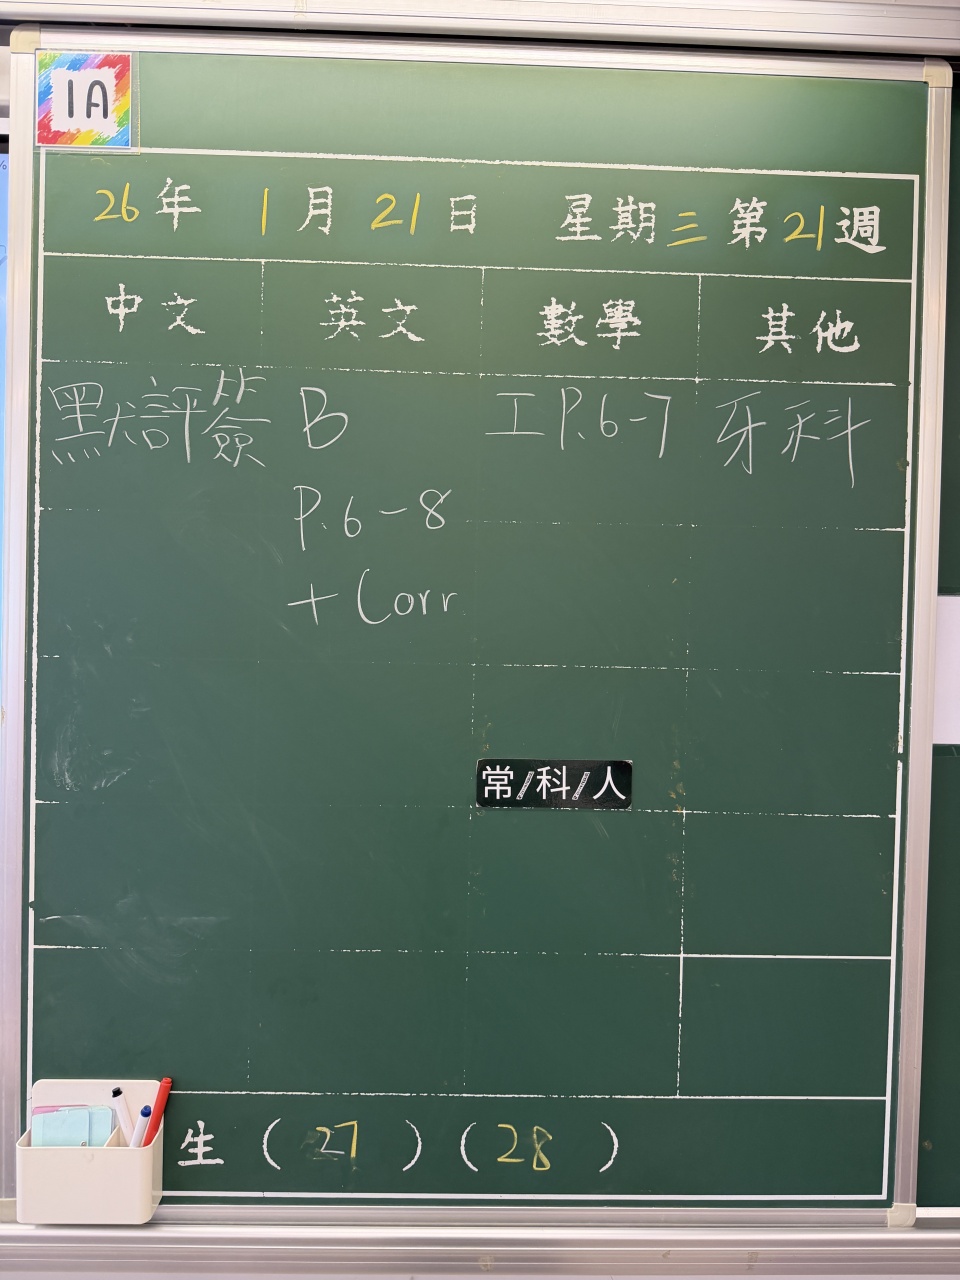 1A
26年 1月21日 星期三 第21週
中文 英文 數學 其他
默評簽 B 工P.6-7 牙科
P.6-8
+Corr
常/科/人
生 (27) (28)